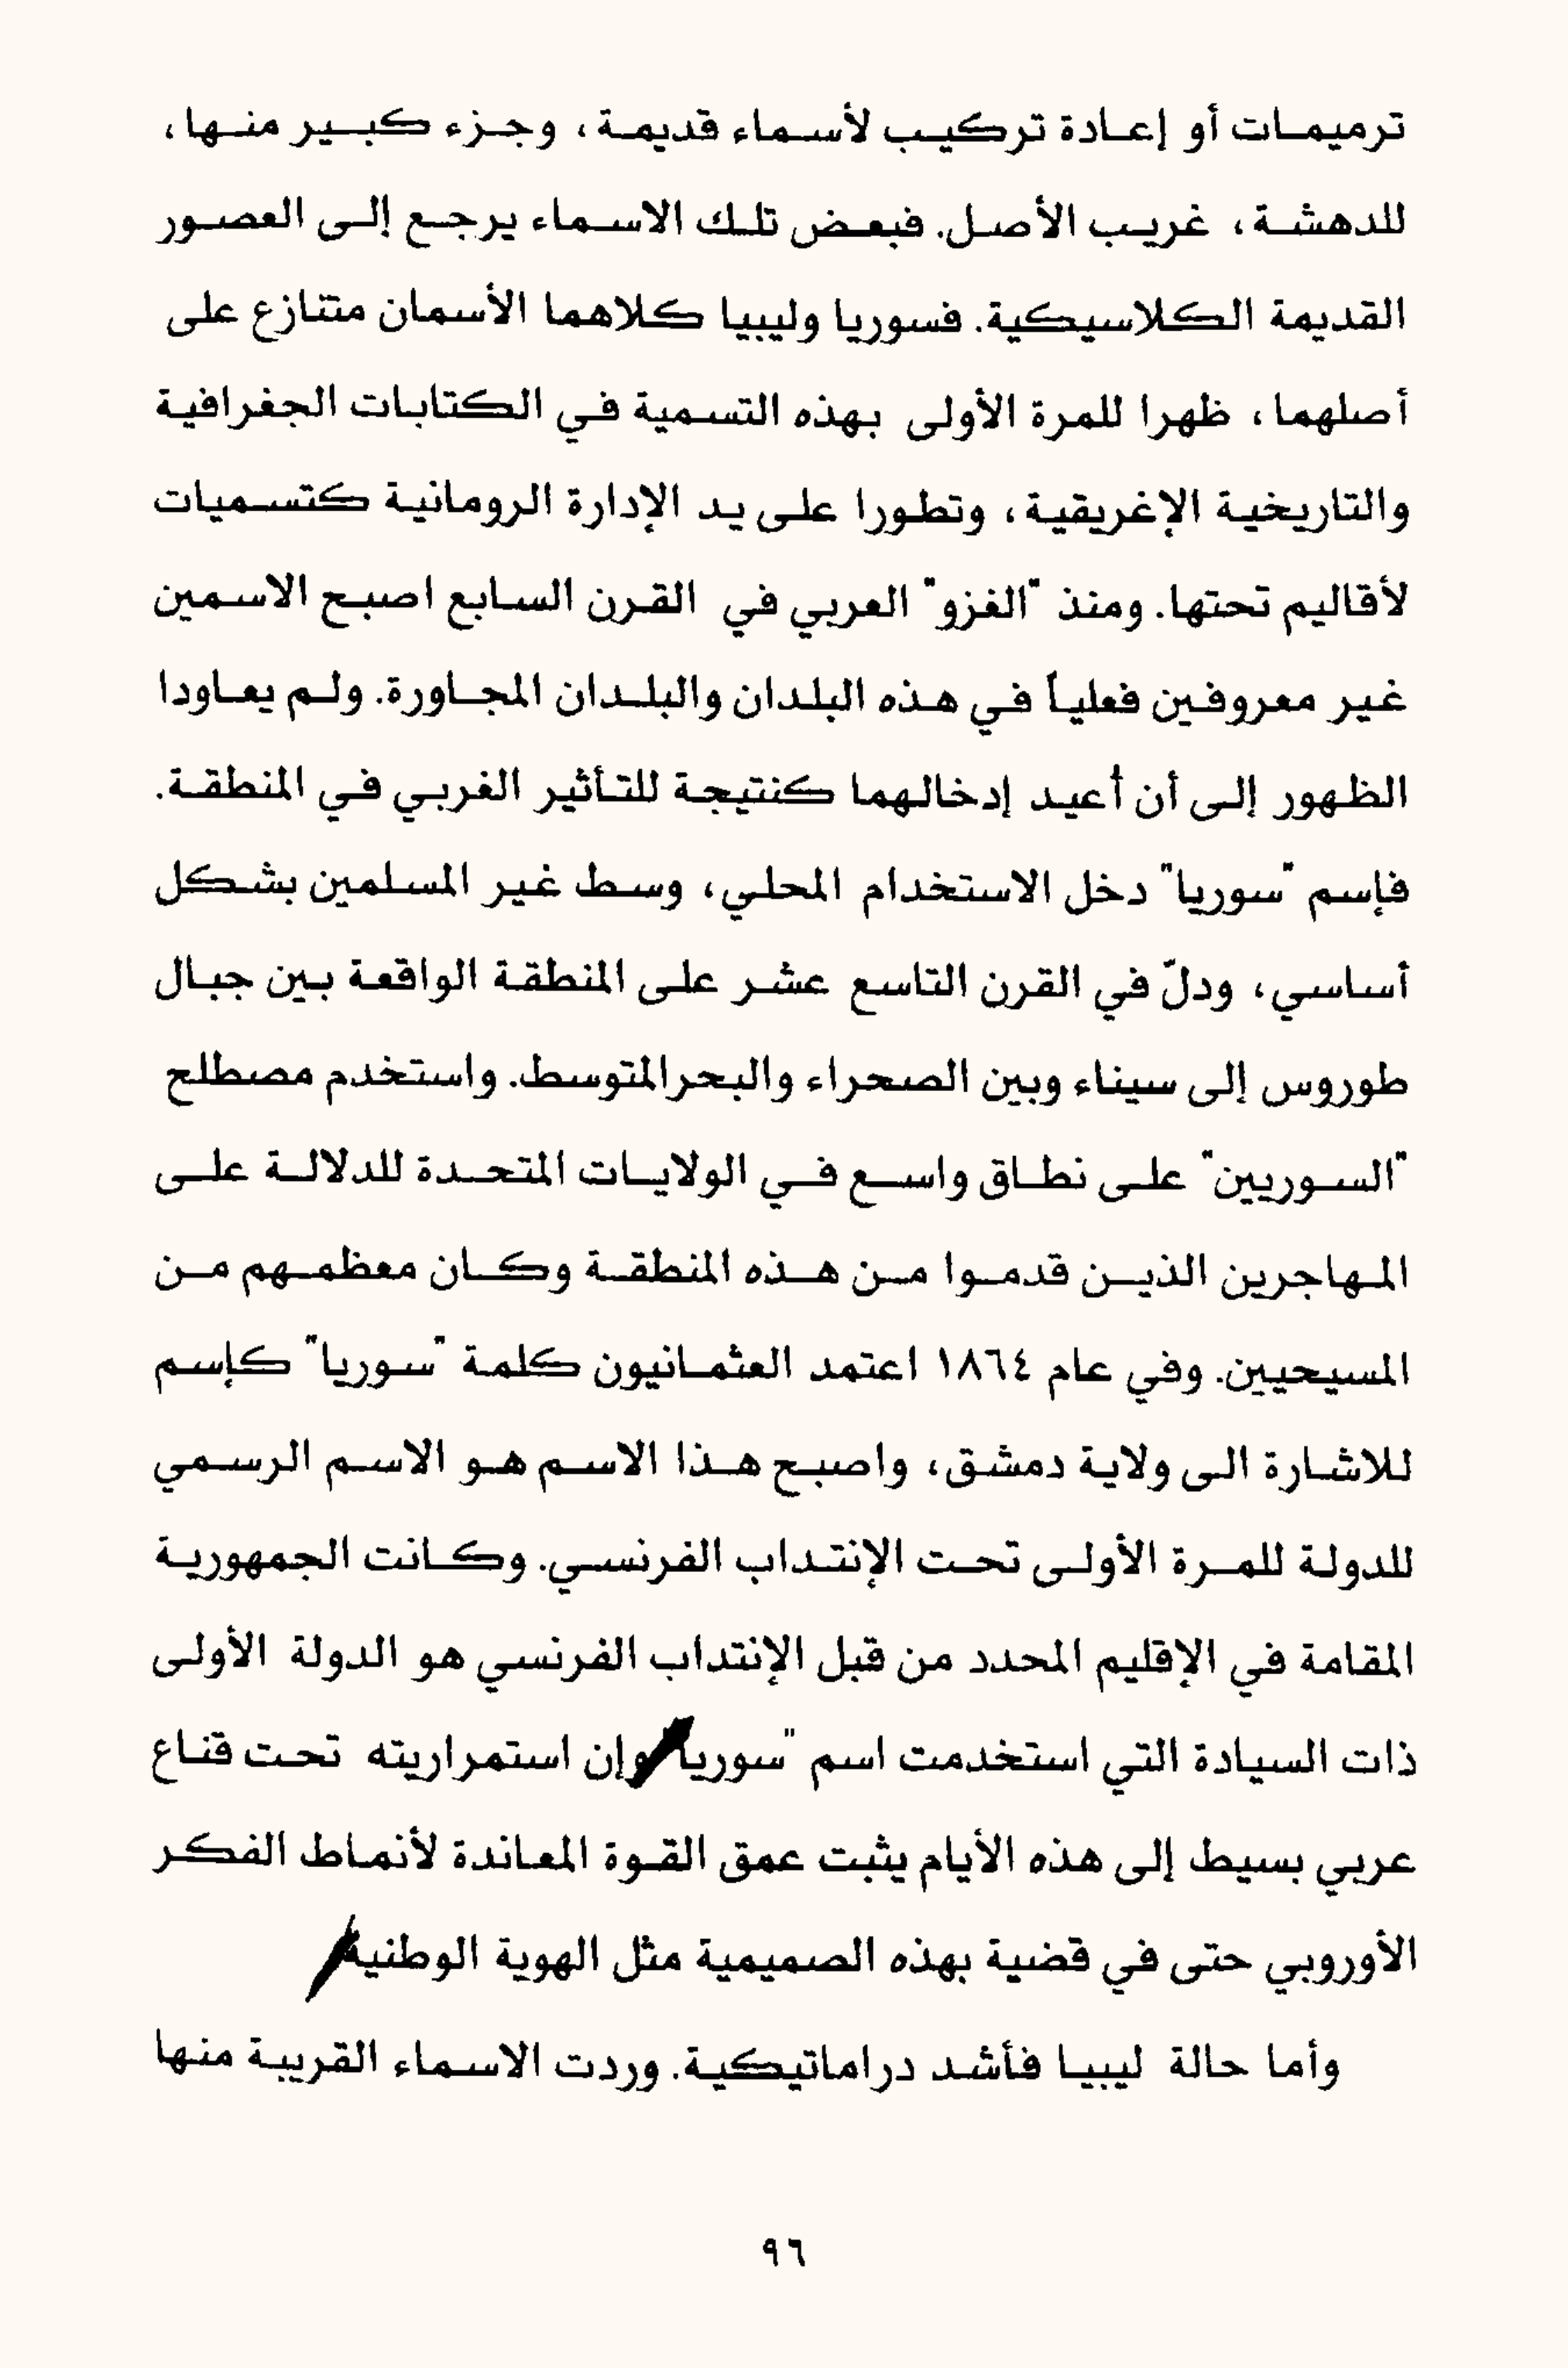 ترميمات أو إعادة تركيب لأسماء قديمة، وجزء كبير منها،
للدهشة، غريب الأصل. فبعض تلك الاسماء يرجع إلى العصور
القديمة الكلاسيكية. فسوريا وليبيا كلاهما الأسمان متنازع على
أصلهما، ظهرا للمرة الأولى بهذه التسمية في الكتابات الجغرافية
والتاريخية الإغريقية، وتطورا على يد الإدارة الرومانية كتسميات
لأقاليم تحتها. ومنذ "الغزو" العربي في القرن السابع اصبح الاسمين
غير معروفين فعلياً في هذه البلدان والبلدان المجاورة. ولم يعاودا
الظهور إلى أن أُعيد إدخالهما كنتيجة للتأثير الغربي في المنطقة.
فإسم "سوريا" دخل الاستخدام المحلي، وسط غير المسلمين بشكل
أساسي، ودلّ في القرن التاسع عشر على المنطقة الواقعة بين جبال
طوروس إلى سيناء وبين الصحراء والبحرالمتوسط. واستخدم مصطلح
"السوريين" على نطاق واسع في الولايات المتحدة للدلالة على
المهاجرين الذين قدموا من هذه المنطقة وكان معظمهم من
المسيحيين. وفي عام ١٨٦٤ اعتمد العثمانيون كلمة "سوريا" كإسم
للاشارة الى ولاية دمشق، واصبح هذا الاسم هو الاسم الرسمي
للدولة للمرة الأولى تحت الإنتداب الفرنسي. وكانت الجمهورية
المقامة في الإقليم المحدد من قبل الإنتداب الفرنسي هو الدولة الأولى
ذات السيادة التي استخدمت اسم "سوريا وإن استمراريته تحت قناع
عربي بسيط إلى هذه الأيام يثبت عمق القوة المعاندة لأنماط الفكر
الأوروبي حتى في قضية بهذه الصميمية مثل الهوية الوطنية
وأما حالة ليبيا فأشد دراماتيكية. وردت الاسماء القريبة منها
٩٦